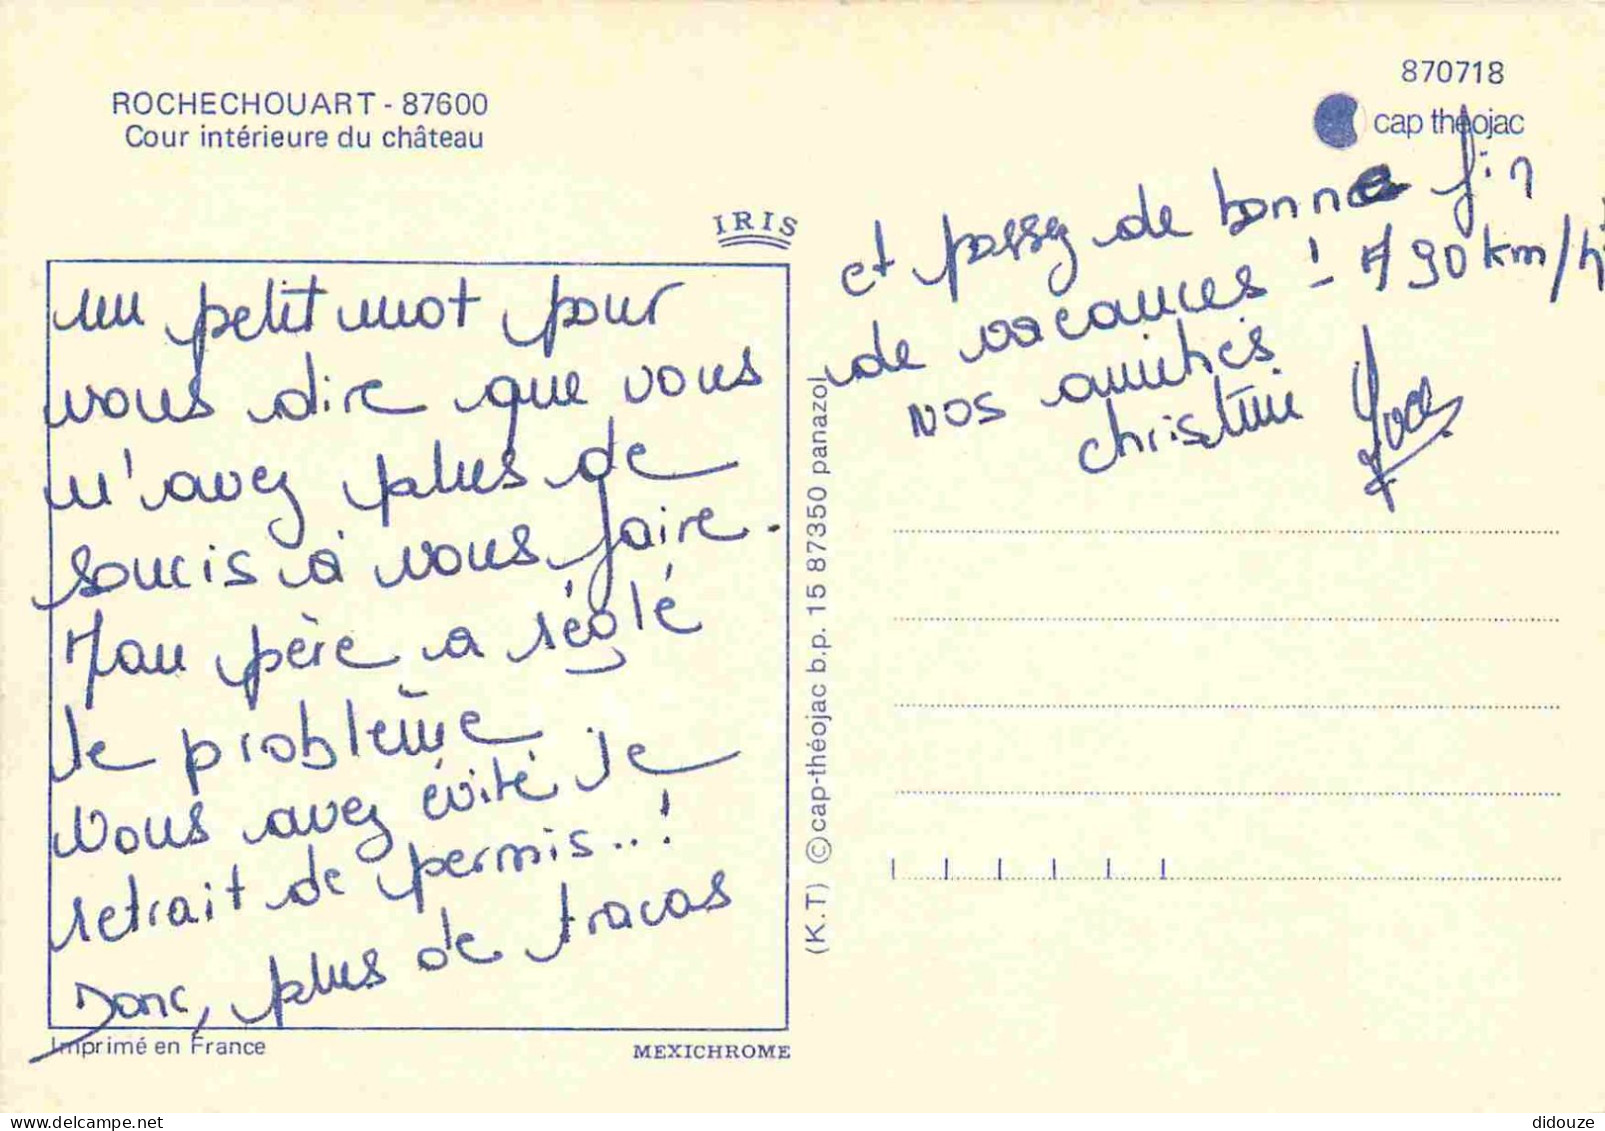 ROCHECHOUART - 87600
Cour intérieure du château
870718
cap théojac
IRIS
un petit mot pour
vous dire que vous
n'avez plus de
soucis à vous faire.
Mon père a réglé
le problème
Vous avez évité le
retrait de permis..!
Donc, plus de tracas
et passez de bonne fin
de vacances ! - A 90 km/h
Nos amitiés
Christine
(K.T) © cap-théojac b.p. 15 87350 panazol
Imprimé en France
MEXICHROME
delcampe.net
didouze